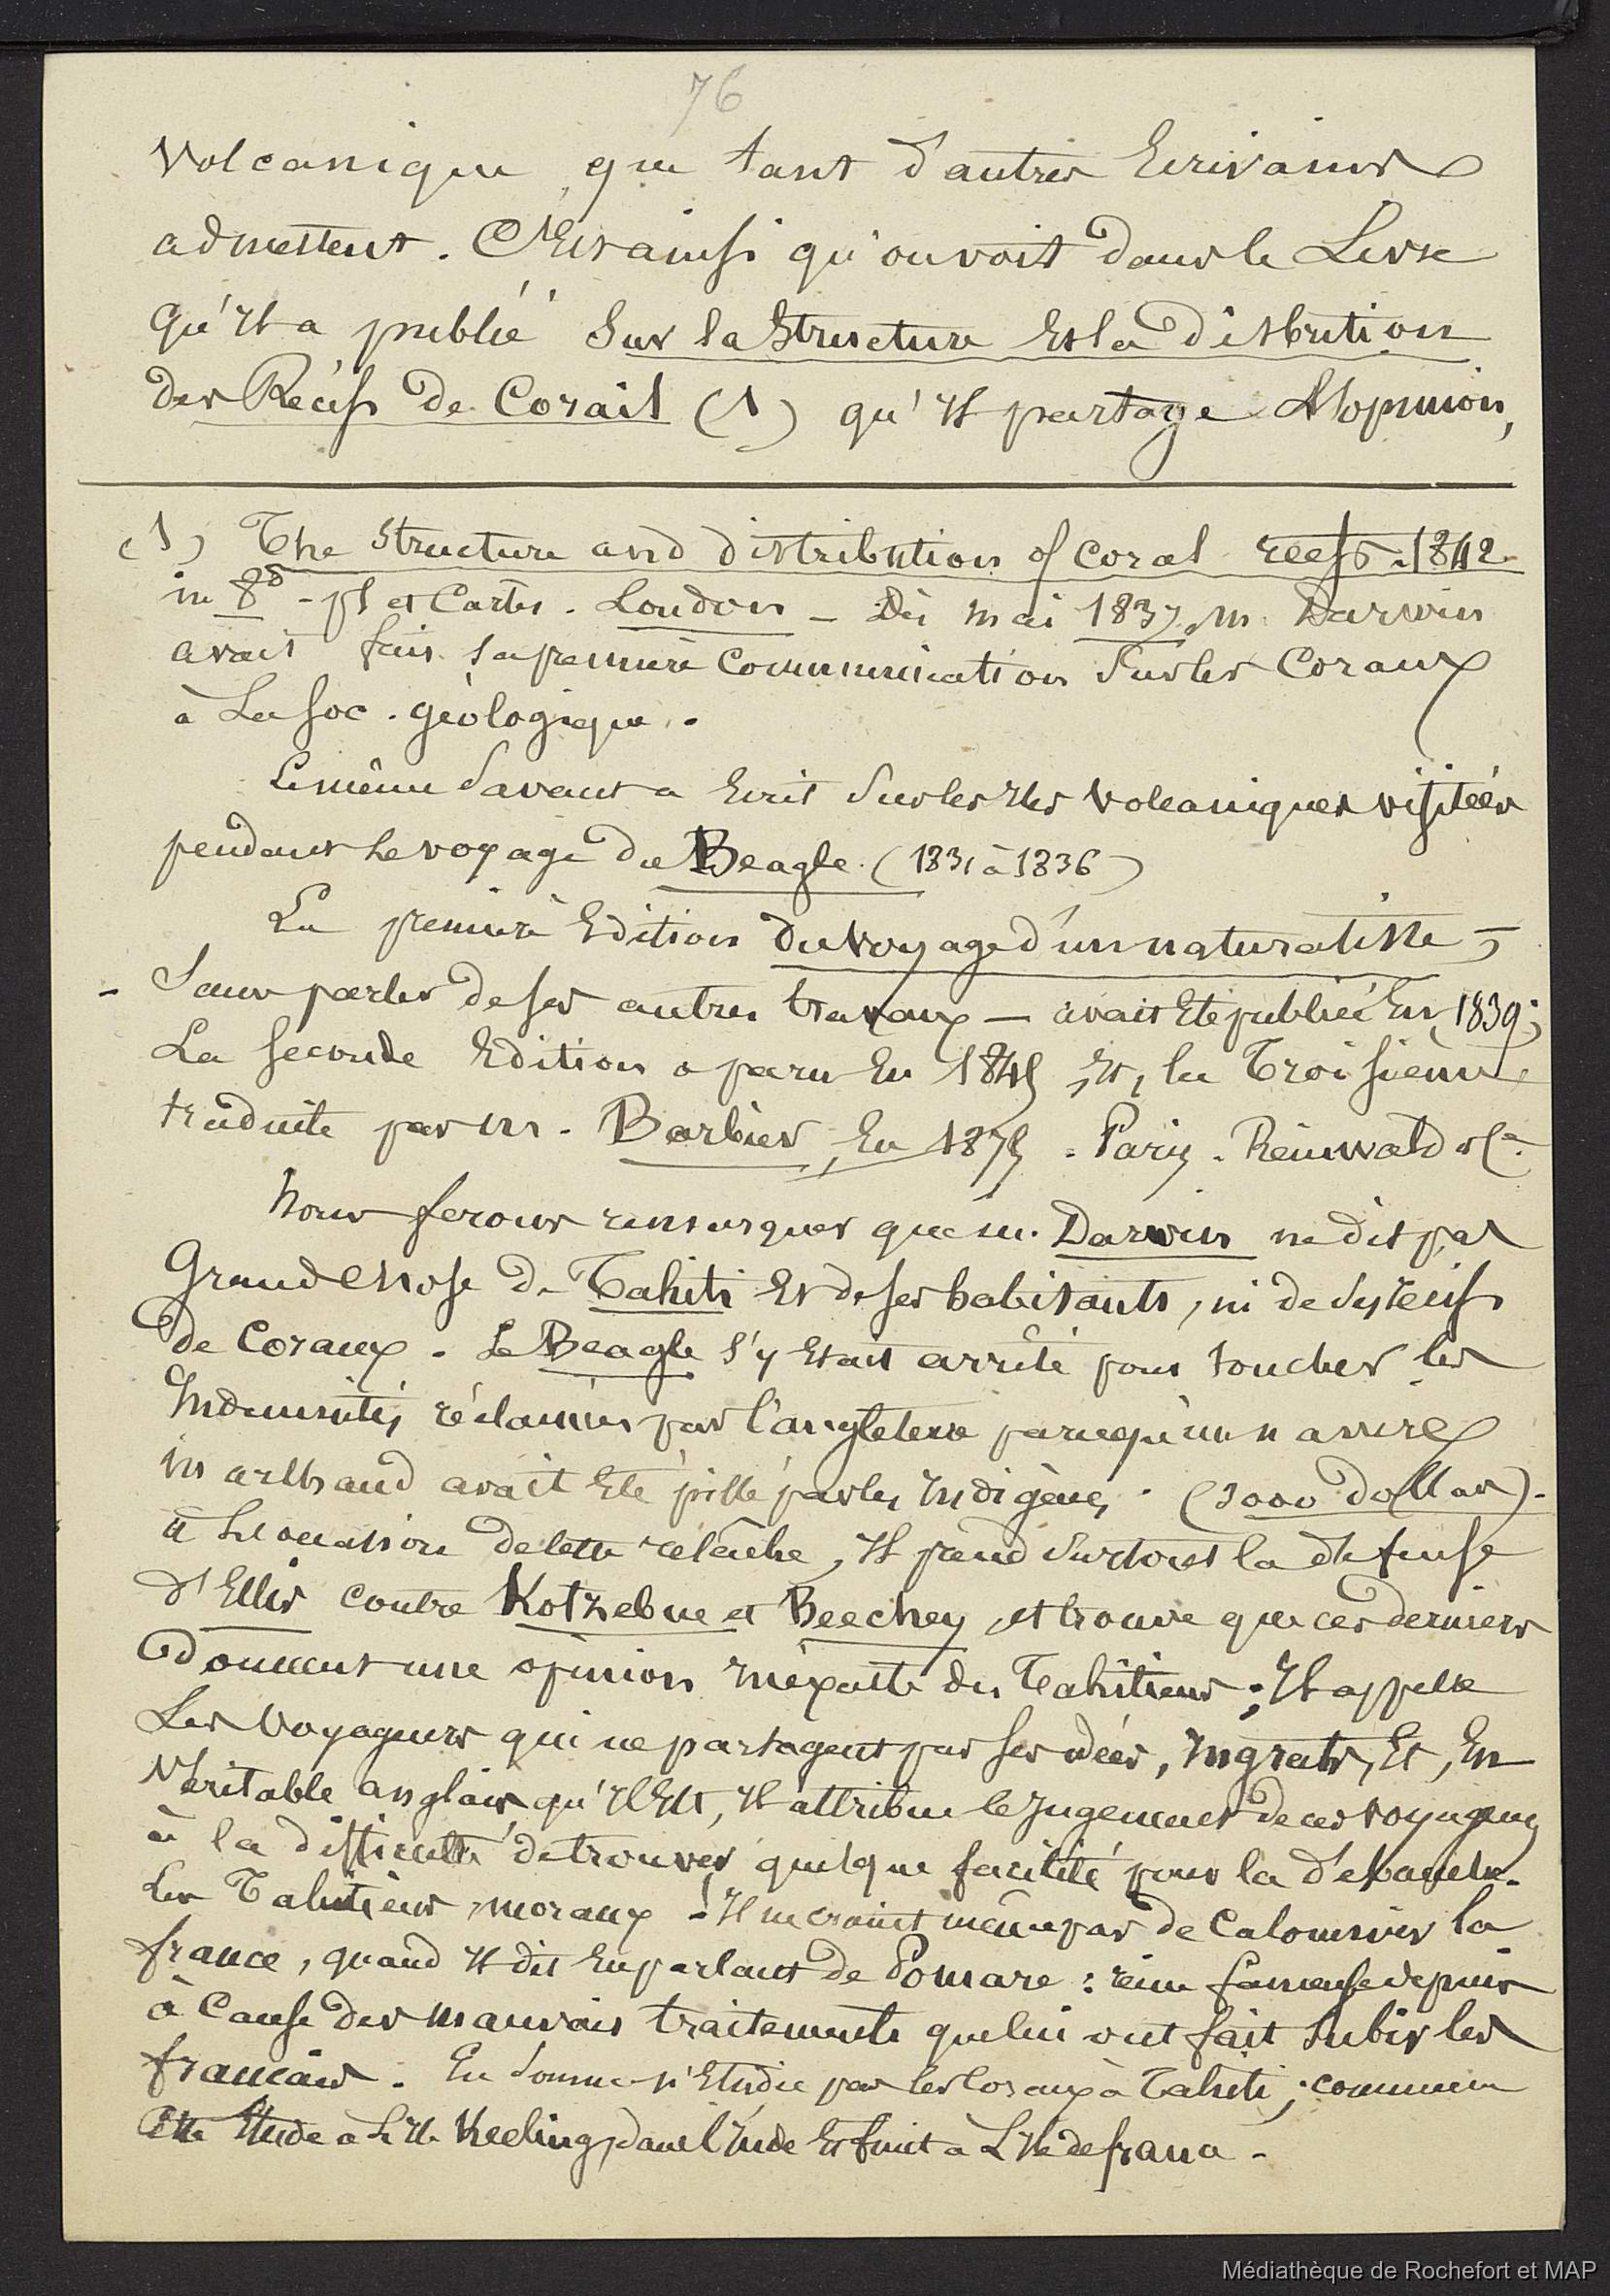 76
Volcanique, que tant d'autres Ecrivains
admettent. C'Est ainsi qu'on voit dans le Livre
qu'Il a publié Sur la Structure Et la distribution
des Récifs de Corail (1) qu'Il partage l'opinion,
(1) The Structure and distribution of coral reefs. 1842
in 8° - pl et Cartes. London - Dès mai 1837, M. Darwin
avait fait sa première Communication Sur les Coraux
à La Soc. géologique.
Le même Savant a Ecrit Sur les Iles Volcaniques visitées
pendant Le voyage du Beagle. (1831 à 1836)
La première Edition du Voyage d'un naturaliste,
- Sans parler de ses autres travaux - avait Eté publiée En 1839;
La Seconde Edition a paru En 1845, Et, la Troisième
traduite par M. Barbier, En 1875. Paris. Reinwald et Cie.
Nous ferons remarquer que m. Darwin ne dit pas
Grand chose de Tahiti Et de ses habitants, ni de Ses récifs
de Coraux. Le Beagle s'y Etait arrêté pour toucher les
Indemnités réclamées par l'angleterre parcequ'un navire
marchand avait Eté pillé par les Indigènes. (3000 dollars).
à L'occasion de cette relâche, Il prend Surtout la défense
d'Ellis contre Kotzebue et Beechey, et trouve que ces derniers
donnent une opinion Inéxacte des Tahitiens; Il appelle
Les Voyageurs qui ne partagent pas ses idées, Ingrats, Et, En
Véritable anglais qu'Il Est, Il attribue le Jugement de ces voyageurs
à la difficulté de trouver quelque facilité pour la débauche.
Les Tahitiens, moraux! Il ne craint même pas de Calomnier la
france, quand Il dit En parlant de Pomare: reine fameuse depuis
à Cause des mauvais traitements que lui ont fait subir les
français. En Somme n'Etudie pas les Coraux à Tahiti; commence
Cette Etude à L'Ile Keeling, dans l'Inde Et finit à L'Ile de france.
Médiathèque de Rochefort et MAP